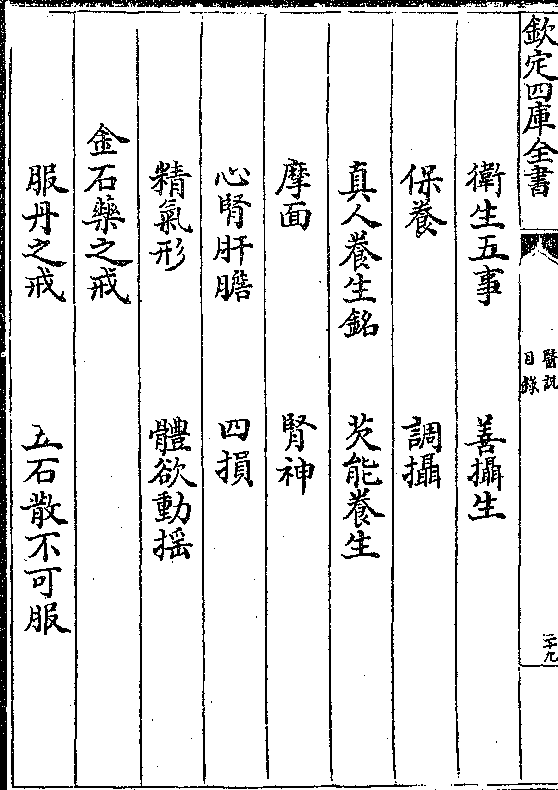 欽定四庫全書
醫說
目錄
二十九
衛生五事 善攝生
保養 調攝
真人養生銘 芡能養生
摩面 腎神
心腎肝膽 四損
精氣形 體欲動揺
金石藥之戒
服丹之戒 五石散不可服